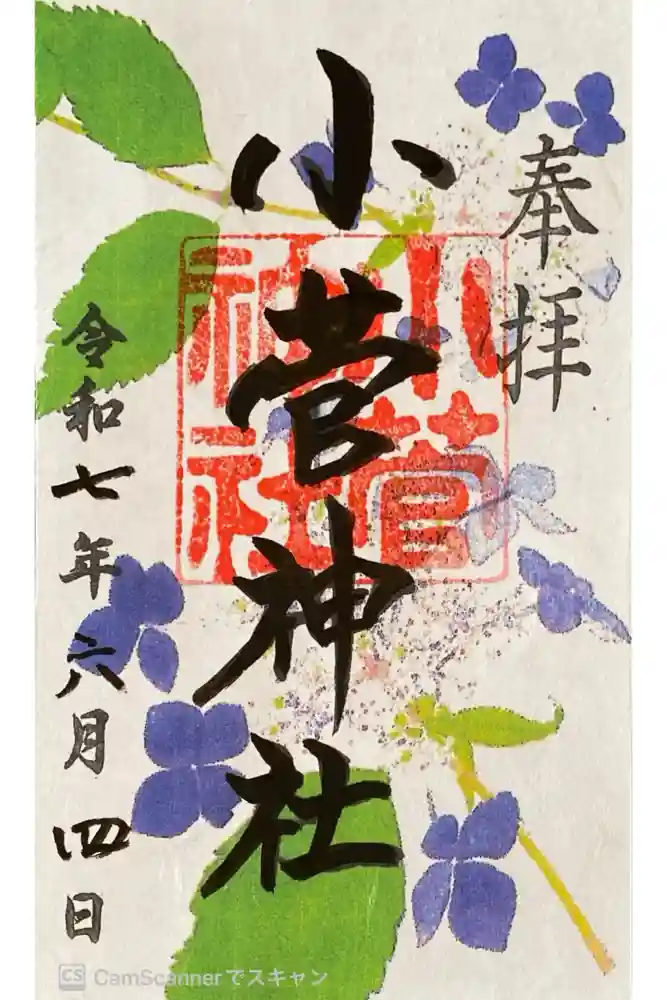 奉拝
小菅神社
小菅
神社
令和七年六月四日
CS CamScannerでスキャン